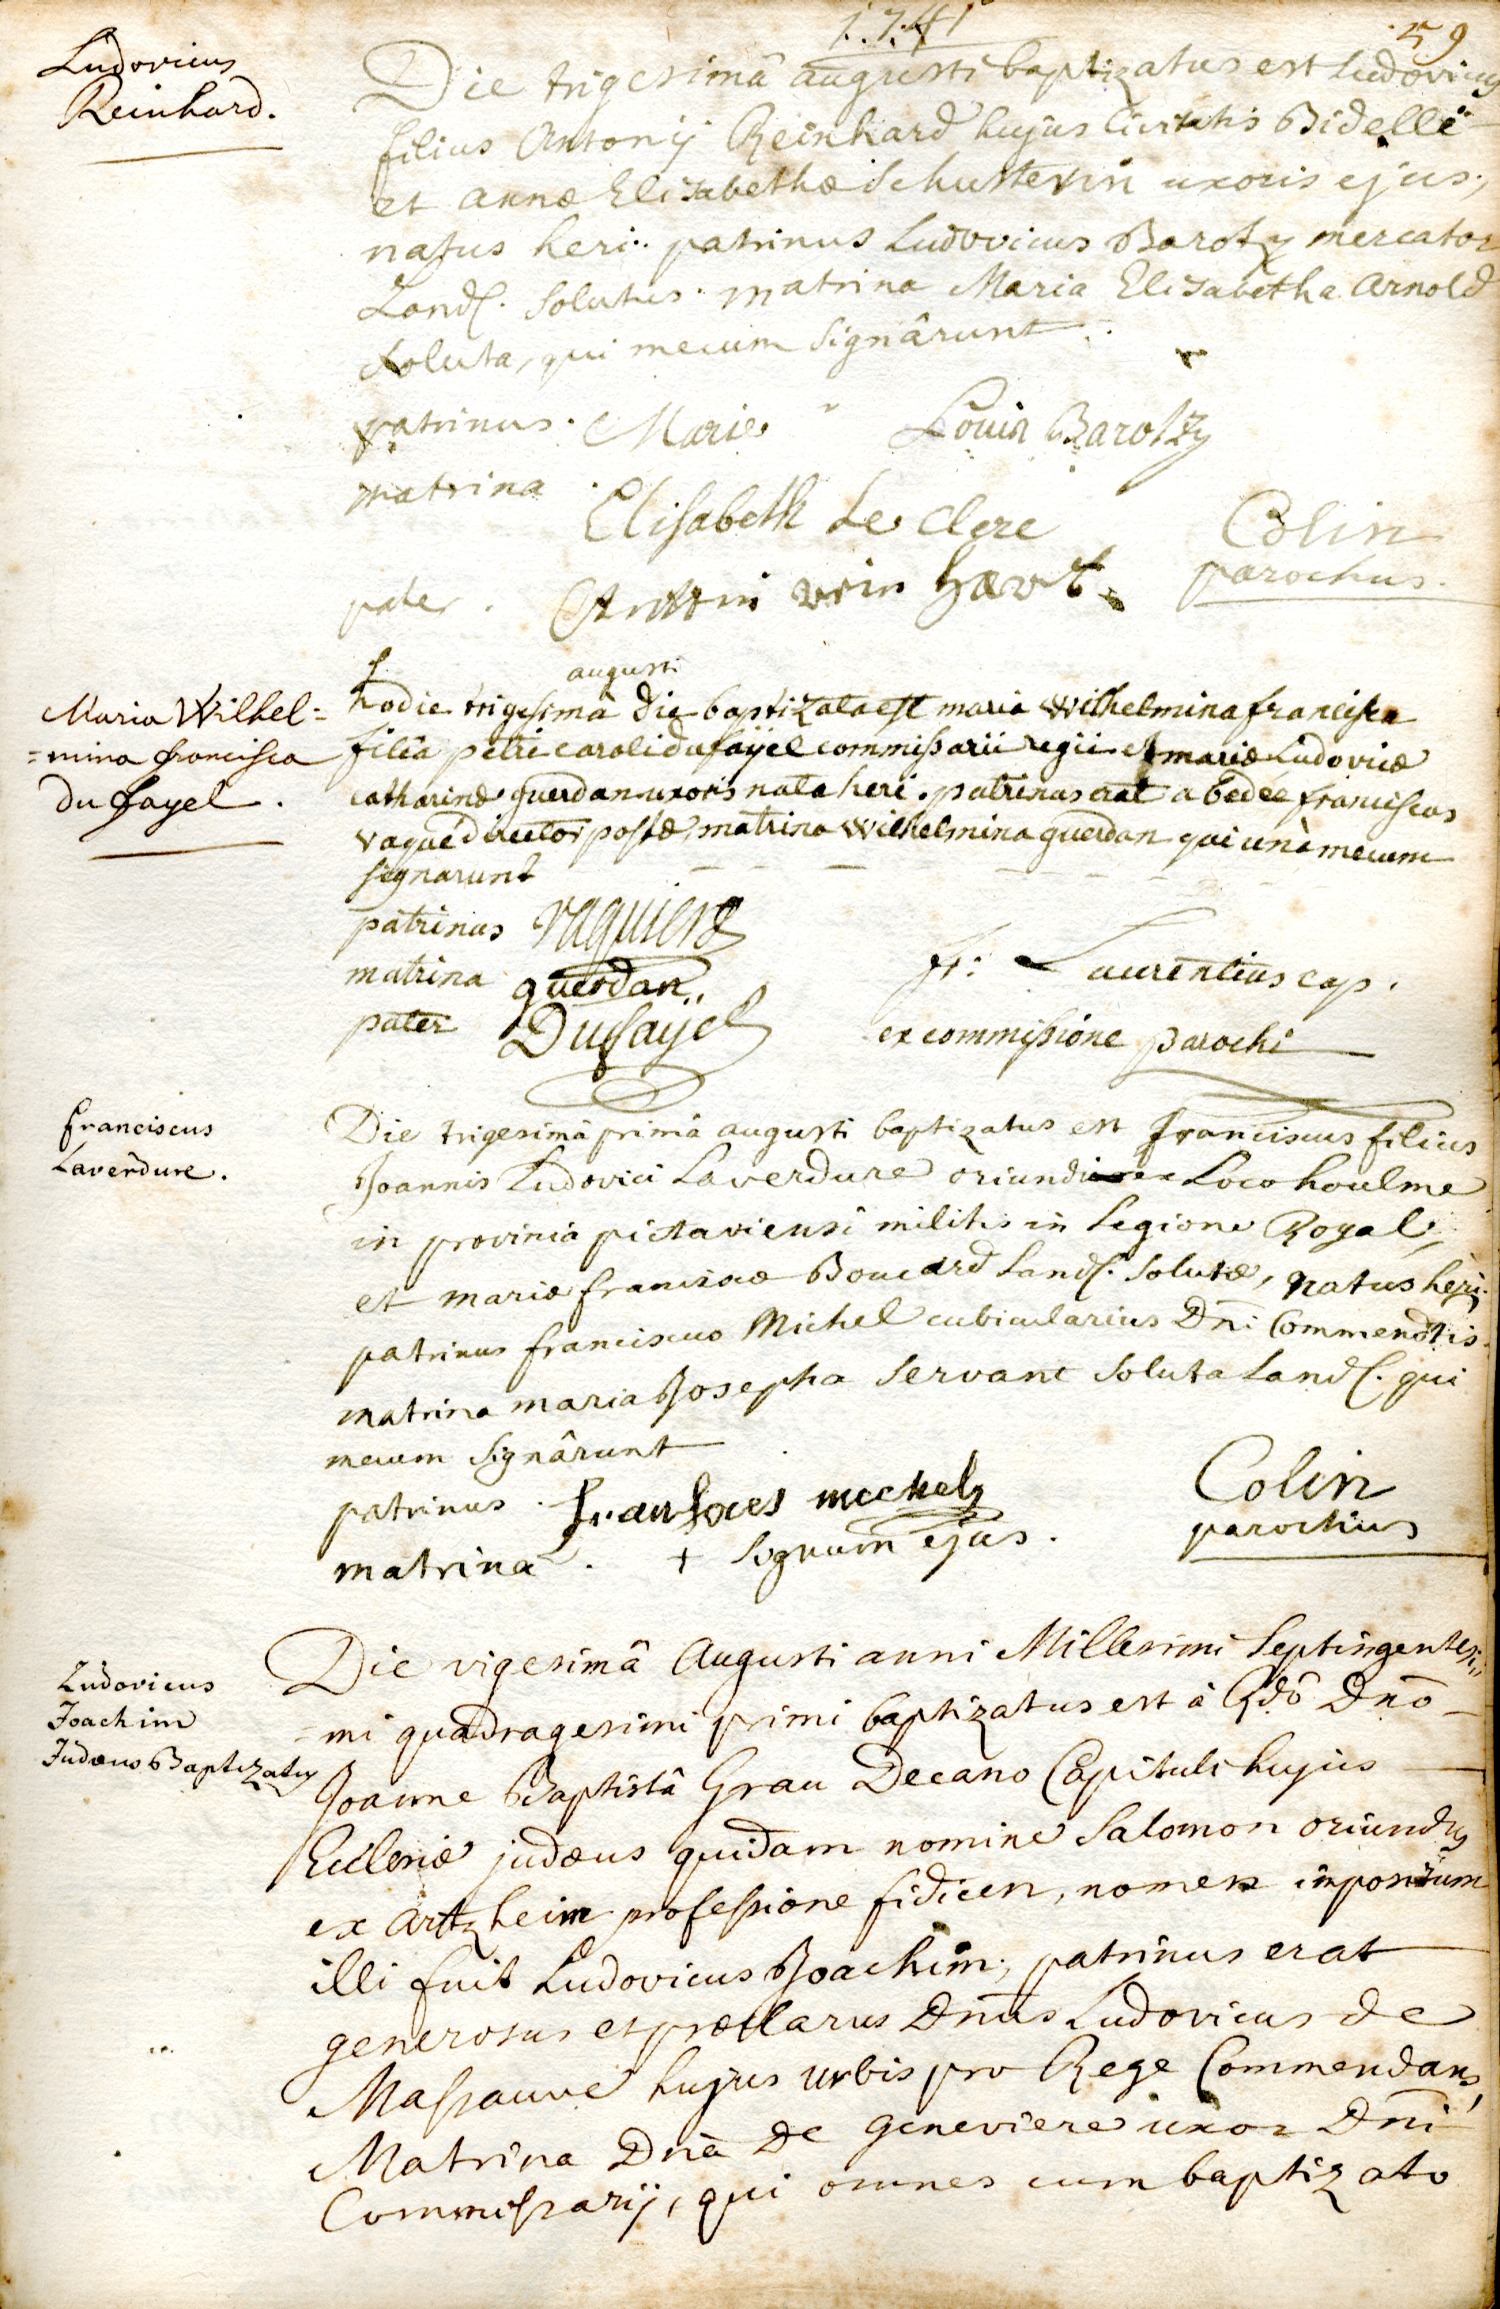 1741
59
Ludovicus
Reinhard.
Die trigesimâ augusti baptizatus est Ludovicus
filius Antonij Reinhard hujus Civitatis Bidelli
et annæ Elizabethæ Schusterin uxoris ejus,
natus heri. patrinus Ludovicus Barotzy mercator
Land. solutus. matrina Maria Elizabetha Arnold
soluta, qui mecum signârunt.
patrinus. Marie Louis Barotzy
matrina Elisabeth Le Clere Colin
pater. parochus.
Maria Wilhel=
=mina francisca
Du fayel.
augusti
hodie trigesima die baptizata est maria Wilhelmina francisca
filia petri caroli dufaÿel commissarii regii et mariæ Ludovicæ
catharinæ querdan uxoris nata heri. patrinus erat franciscus
vaque director postæ, matrina Wilhelmina querdan qui unà mecum
signarunt
patrinus vaquiere
matrina querdan fr: Laurentius cap.
pater Dufaÿel ex commissione parochi
franciscus
Laverdure.
Die trigesimâ primâ augusti baptizatus est franciscus filius
Joannis Ludovici Laverdure oriundi ex Loco houlme
in provinciâ pictaviensi militis in Legione Royal,
et mariæ franciscæ Boucard Land. solutæ, natus heri.
patrinus franciscus Michel cubicularius Dni Commendtis.
matrina maria Josepha Servant soluta Land. qui
mecum signârunt
patrinus. franscoes mechel Colin
matrina. + signum ejus. parochus
Ludovicus
Joachim
Judæus Baptizatus
Die vigesimâ Augusti anni Millesimi Septingentesi=
=mi quadragesimi primi baptizatus est â Rdo Dno
Joanne Baptistâ Grau Decano Capituli hujus
Ecclesiæ judæus quidam nomine Salomon oriundus
ex Artzheim professione fidicen, nomen impositum
illi fuit Ludovicus Joachim, patrinus erat
generosus et præclarus Dnus Ludovicus de
Massauve hujus urbis pro Rege Commendans,
Matrina Dnâ De Geneviere uxor Dni
Commissarij, qui omnes cum baptizato